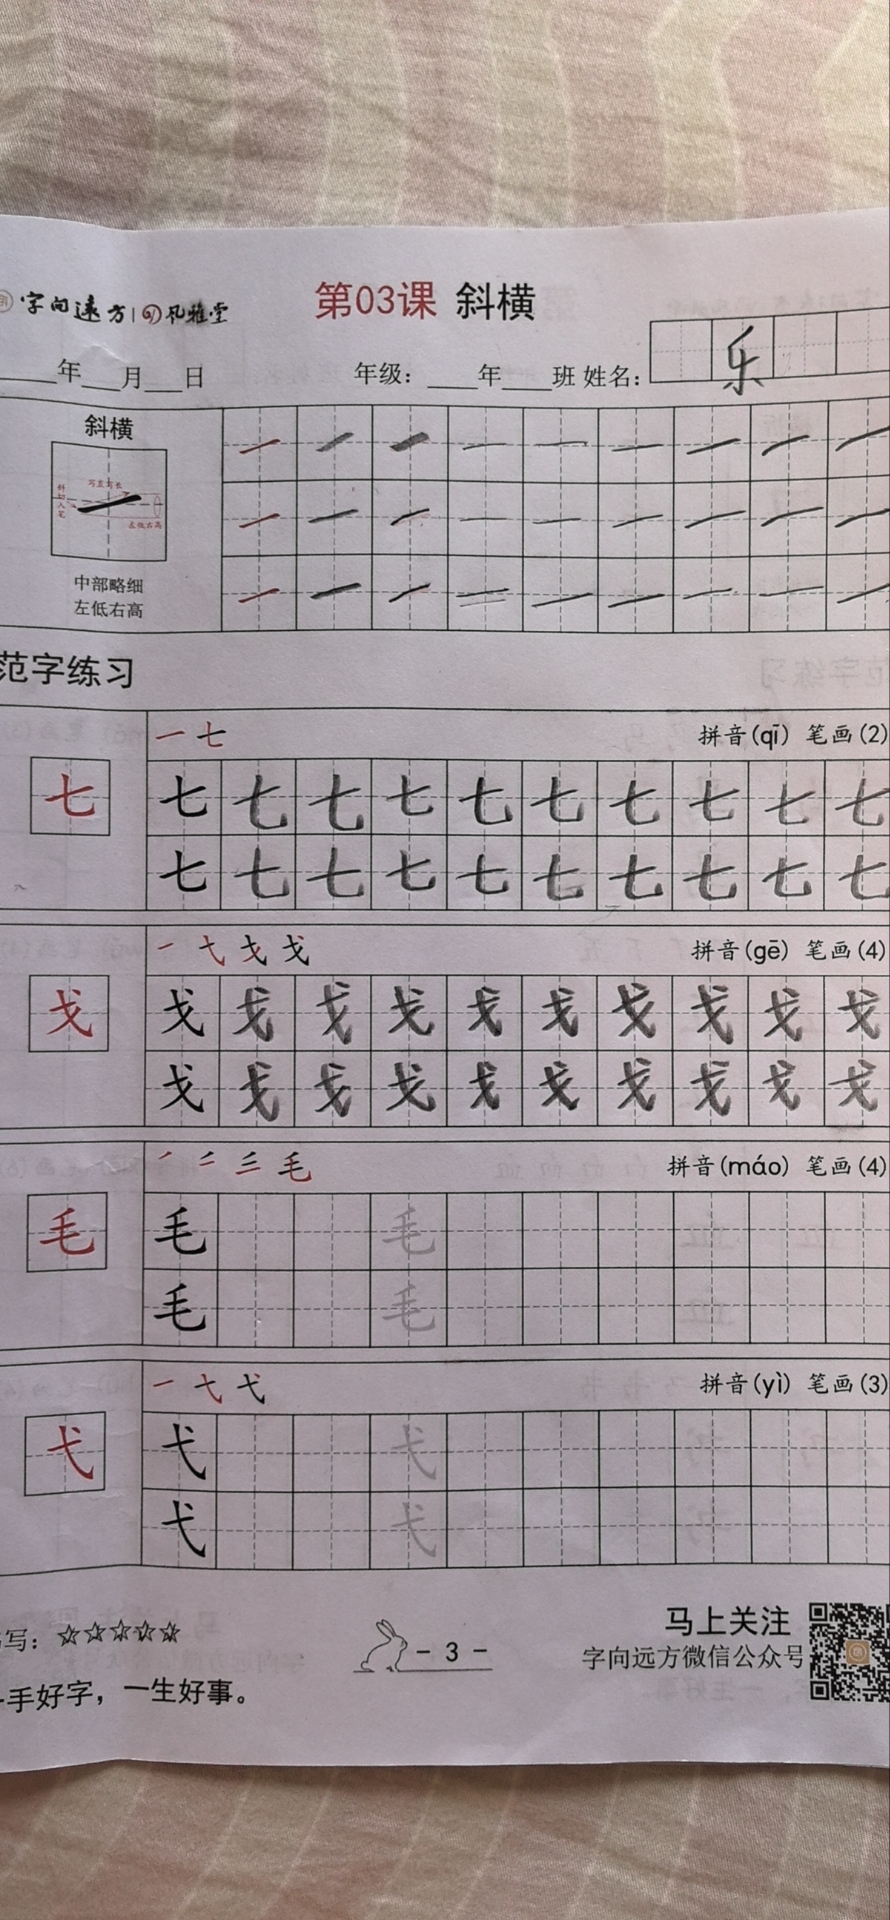 字向远方 | 风雅堂
第03课 斜横
___年___月___日 年级：___年___班 姓名： 乐
斜横
写直写长
斜切入笔
左低右高
中部略细
左低右高
范字练习
一 七 拼音(qī) 笔画(2)
七 七 七 七 七 七 七 七 七 七 七
七 七 七 七 七 七 七 七 七 七
戈 拼音(gē) 笔画(4)
戈 戈 戈 戈 戈 戈 戈 戈 戈 戈 戈
戈 戈 戈 戈 戈 戈 戈 戈 戈 戈
毛 拼音(máo) 笔画(4)
毛 毛 毛
毛 毛
一 弋 弋 拼音(yì) 笔画(3)
弋 弋 弋
弋 弋
写：☆☆☆☆☆
手好字，一生好事。
- 3 -
马上关注
字向远方微信公众号